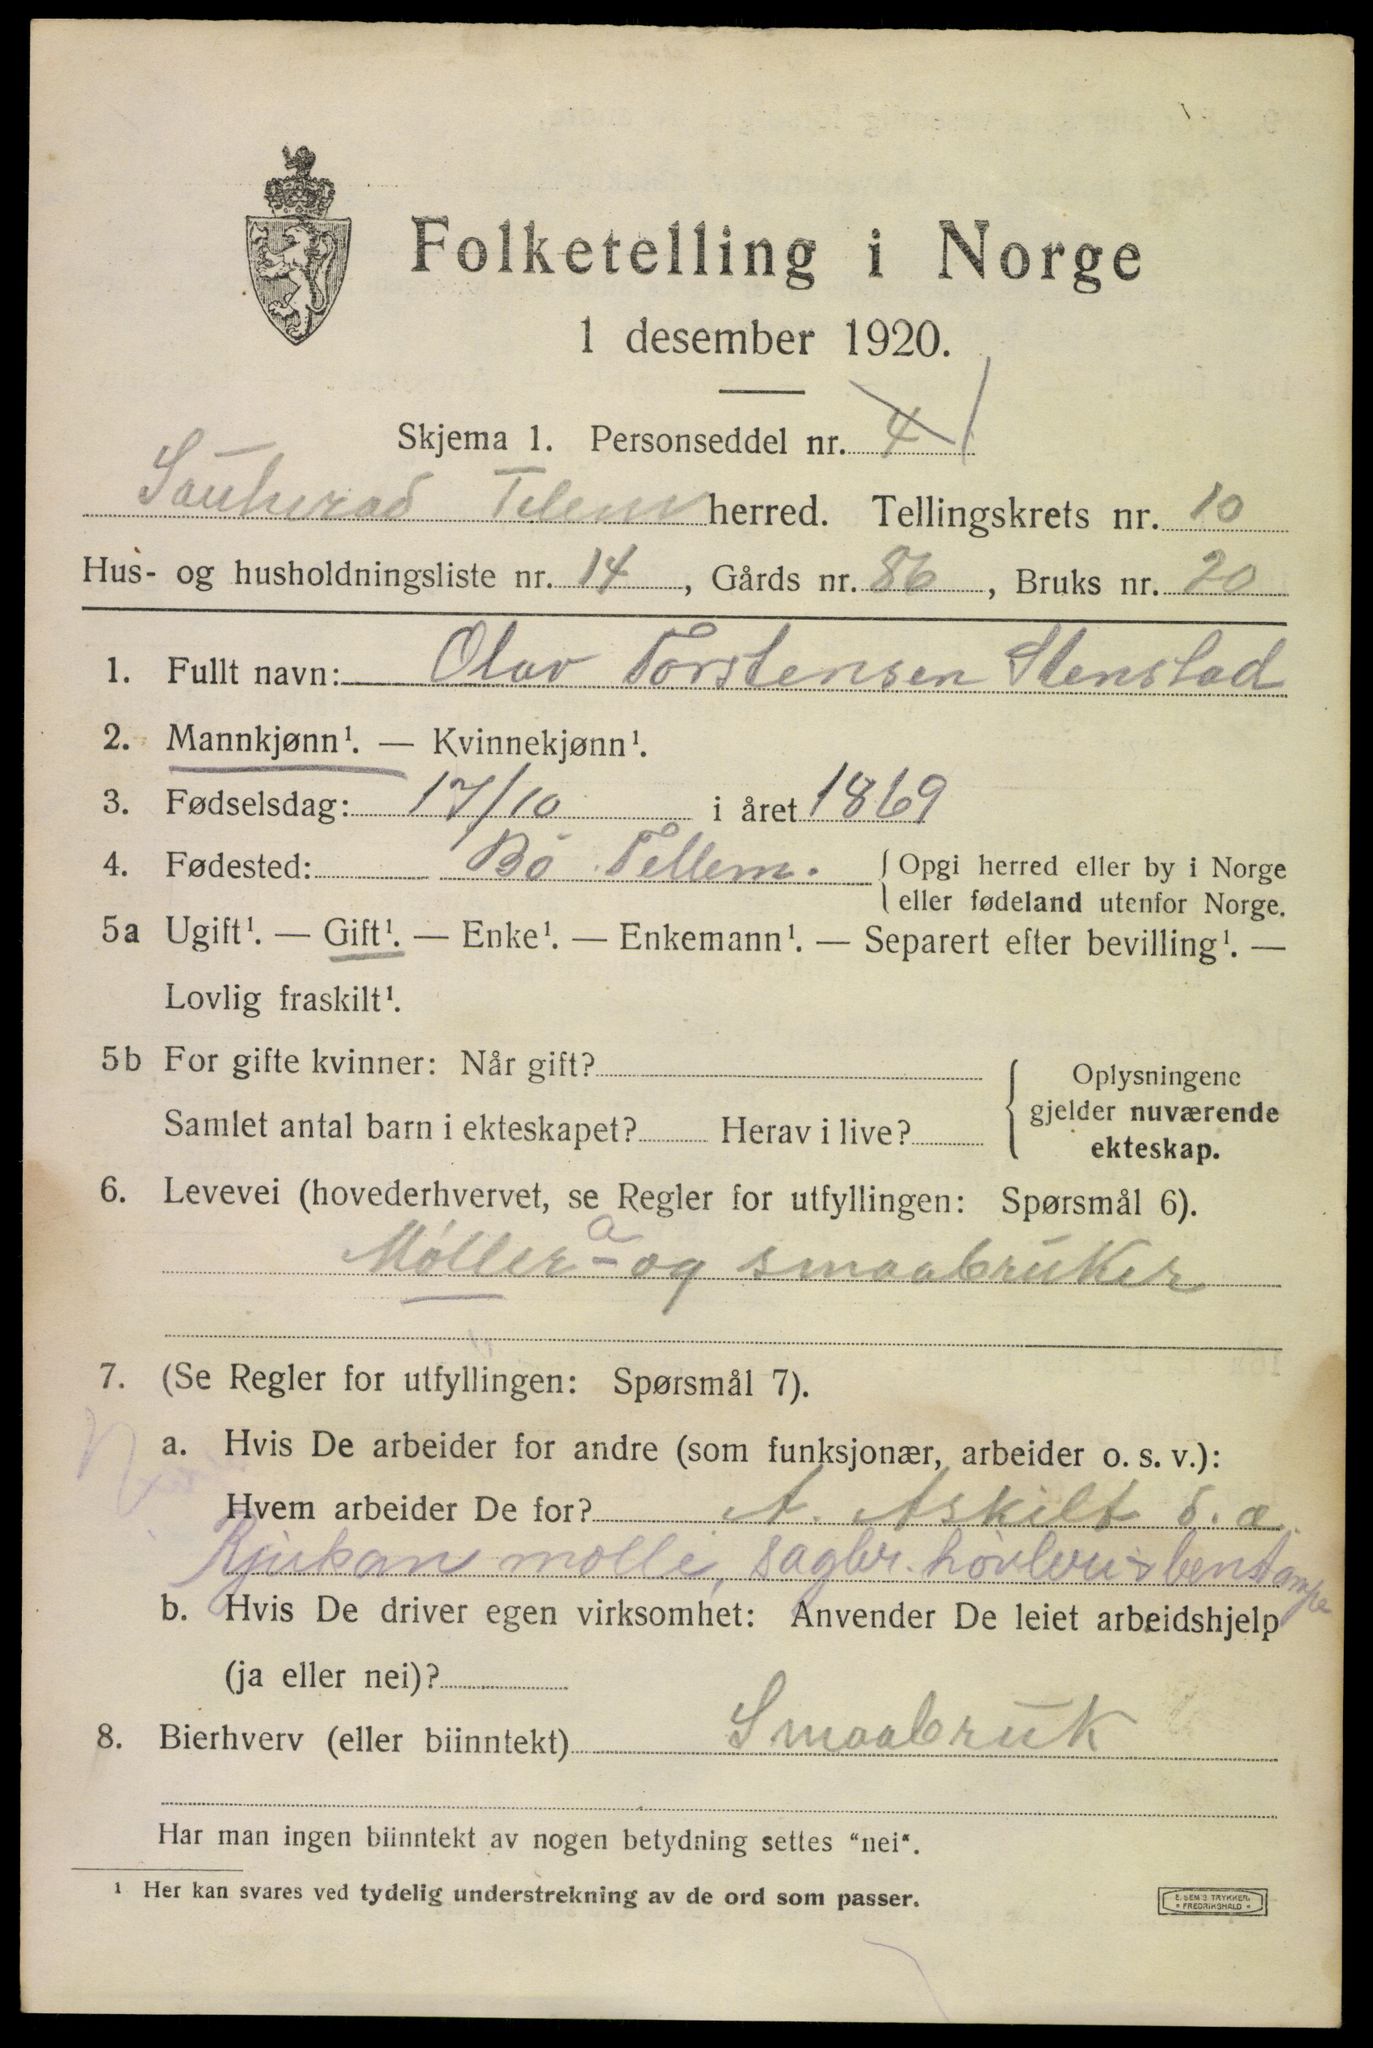 Folketelling i Norge
1 desember 1920.
Skjema 1. Personseddel nr. 4 1
Sauherad Telem herred. Tellingskrets nr. 10
Hus- og husholdningsliste nr. 14, Gårds nr. 86, Bruks nr. 20
1. Fullt navn: Olav Torstensen Stenstad
2. Mannkjønn¹. — Kvinnekjønn¹.
3. Fødselsdag: 17/10 i året 1869
4. Fødested: Bø Tellem. { Opgi herred eller by i Norge
eller fødeland utenfor Norge.
5a Ugift¹. — Gift¹. — Enke¹. — Enkemann¹. — Separert efter bevilling¹. —
Lovlig fraskilt¹.
5b For gifte kvinner: Når gift?
Samlet antal barn i ekteskapet? Herav i live?
{ Oplysningene
gjelder nuværende
ekteskap.
6. Levevei (hovederhvervet, se Regler for utfyllingen: Spørsmål 6).
a
Møller- og smaabruker
7. (Se Regler for utfyllingen: Spørsmål 7).
a. Hvis De arbeider for andre (som funksjonær, arbeider o. s. v.):
Hvem arbeider De for? A. Askilt
Rjukan mølle, sagbr. høvleri & benstampe
b. Hvis De driver egen virksomhet: Anvender De leiet arbeidshjelp
(ja eller nei)?
8. Bierhverv (eller biinntekt) Smaabruk
Har man ingen biinntekt av nogen betydning settes "nei".
¹ Her kan svares ved tydelig understrekning av de ord som passer.
E. SEM'S TRYKKERI,
* FREDRIKSHALD *